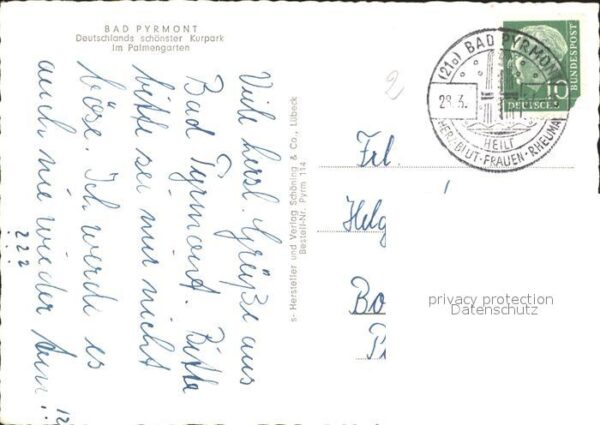 BAD PYRMONT
Deutschlands schönster Kurpark
Im Palmengarten
Viele herzl. Grüße aus
Bad Pyrmont. Bitte
bitte sei mir nicht
böse. Ich werde es
auch nie wieder tun!
???
12
s- Hersteller und Verlag Schöning & Co., Lübeck
Bestell-Nr. Pyrm 114
2
(21a) BAD PYRMONT
28.3.
HEILT
HERZ-BLUT-FRAUEN-RHEUMA
10
DEUTSCHE
BUNDESPOST
Frl.
Helg
Bo
privacy protection
Datenschutz